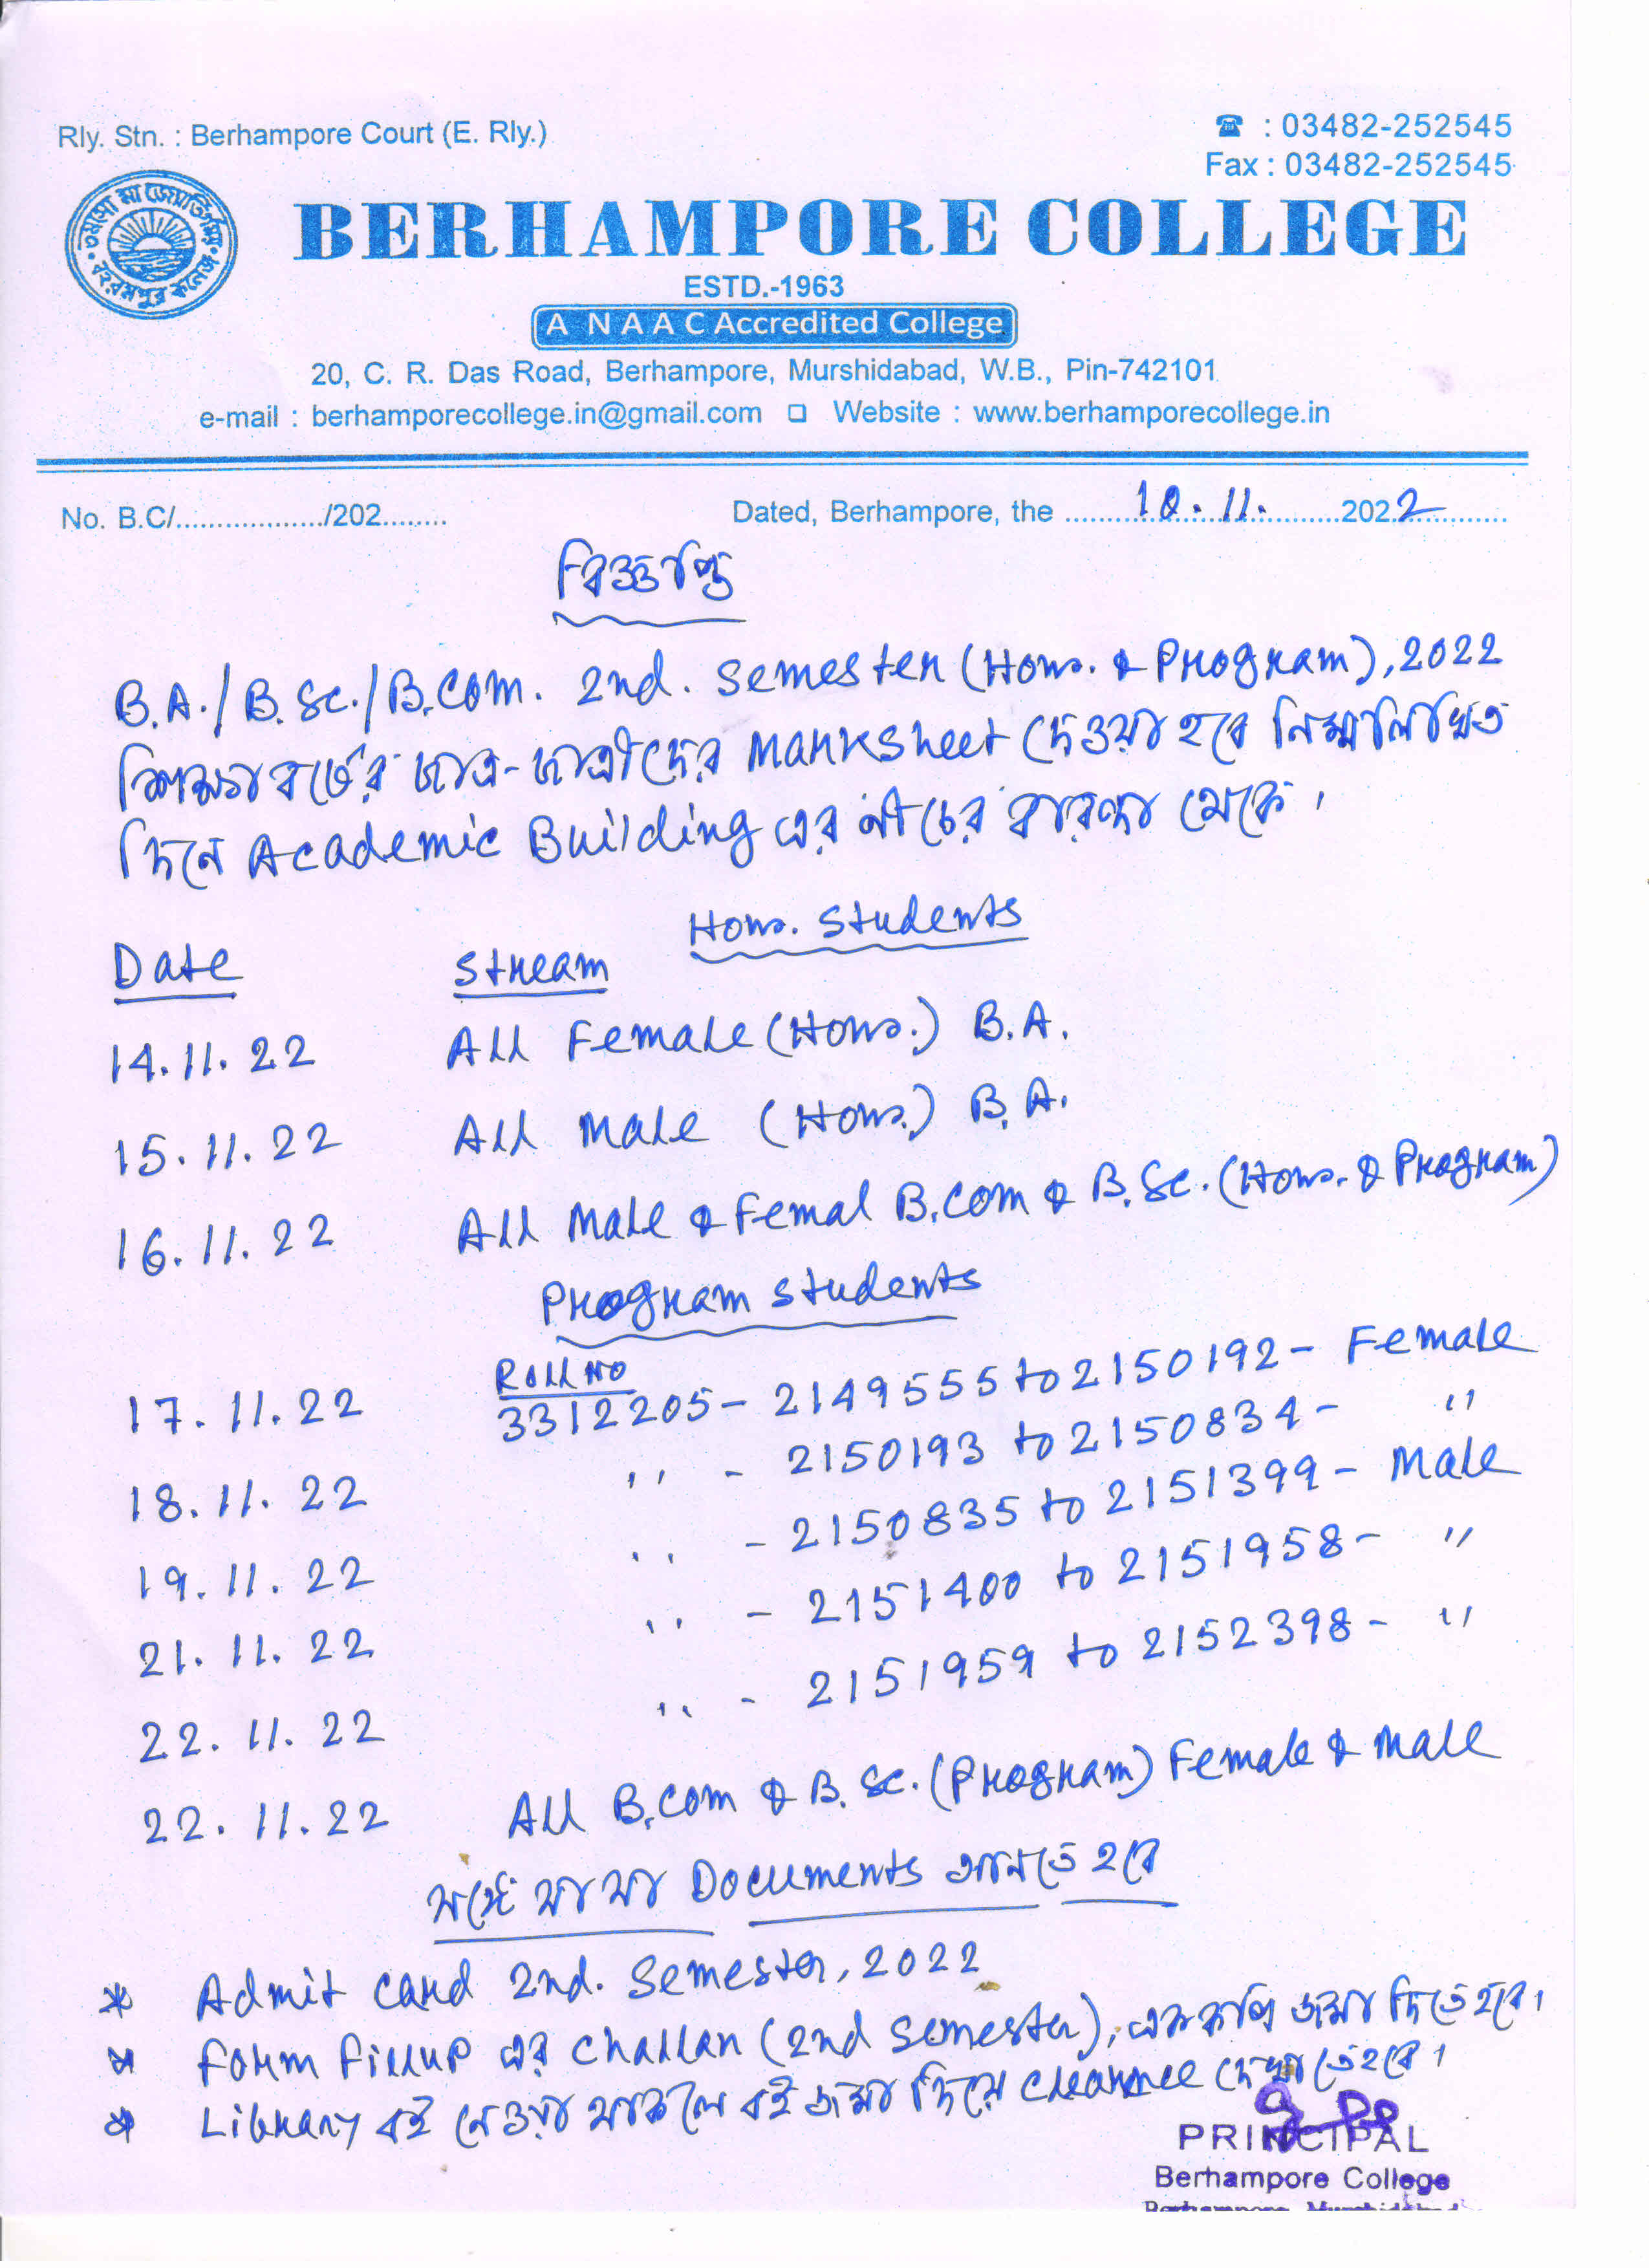 Rly. Stn. : Berhampore Court (E. Rly.)
☎ : 03482-252545
Fax : 03482-252545
তমসো মা জ্যোতির্গময়
বহরমপুর কলেজ
BERHAMPORE COLLEGE
ESTD.-1963
A NAAC Accredited College
20, C. R. Das Road, Berhampore, Murshidabad, W.B., Pin-742101
e-mail : berhamporecollege.in@gmail.com ❑ Website : www.berhamporecollege.in
No. B.C/................../202........ Dated, Berhampore, the ..........10.11...........2022............
বিজ্ঞপ্তি
B.A./B.Sc./B.Com. 2nd. Semester (Hons. & Program), 2022
শিক্ষাবর্ষের ছাত্র-ছাত্রীদের Marksheet দেওয়া হবে নিম্নলিখিত
দিনে Academic Building এর নীচের বারান্দা থেকে।
Hons. Students
Date Stream
14.11.22 All Female (Hons.) B.A.
15.11.22 All Male (Hons.) B.A.
16.11.22 All Male & Femal B.Com & B.Sc. (Hons. & Program)
Program Students
Roll No
17.11.22 3312205- 2149555 to 2150192- Female
18.11.22 " - 2150193 to 2150834- "
19.11.22 " - 2150835 to 2151399- Male
21.11.22 " - 2151400 to 2151958- "
22.11.22 " - 2151959 to 2152398- "
22.11.22 All B.Com & B.Sc. (Program) Female & Male
সঙ্গে যা যা Documents আনতে হবে
* Admit Card 2nd. Semester, 2022
* Form Fillup এর Challan (2nd Semester), এক কপি জমা দিতে হবে।
* Library বই নেওয়া থাকলে বই জমা দিয়ে Clearance দেখাতে হবে।
PRINCIPAL
Berhampore College
Berhampore, Murshidabad